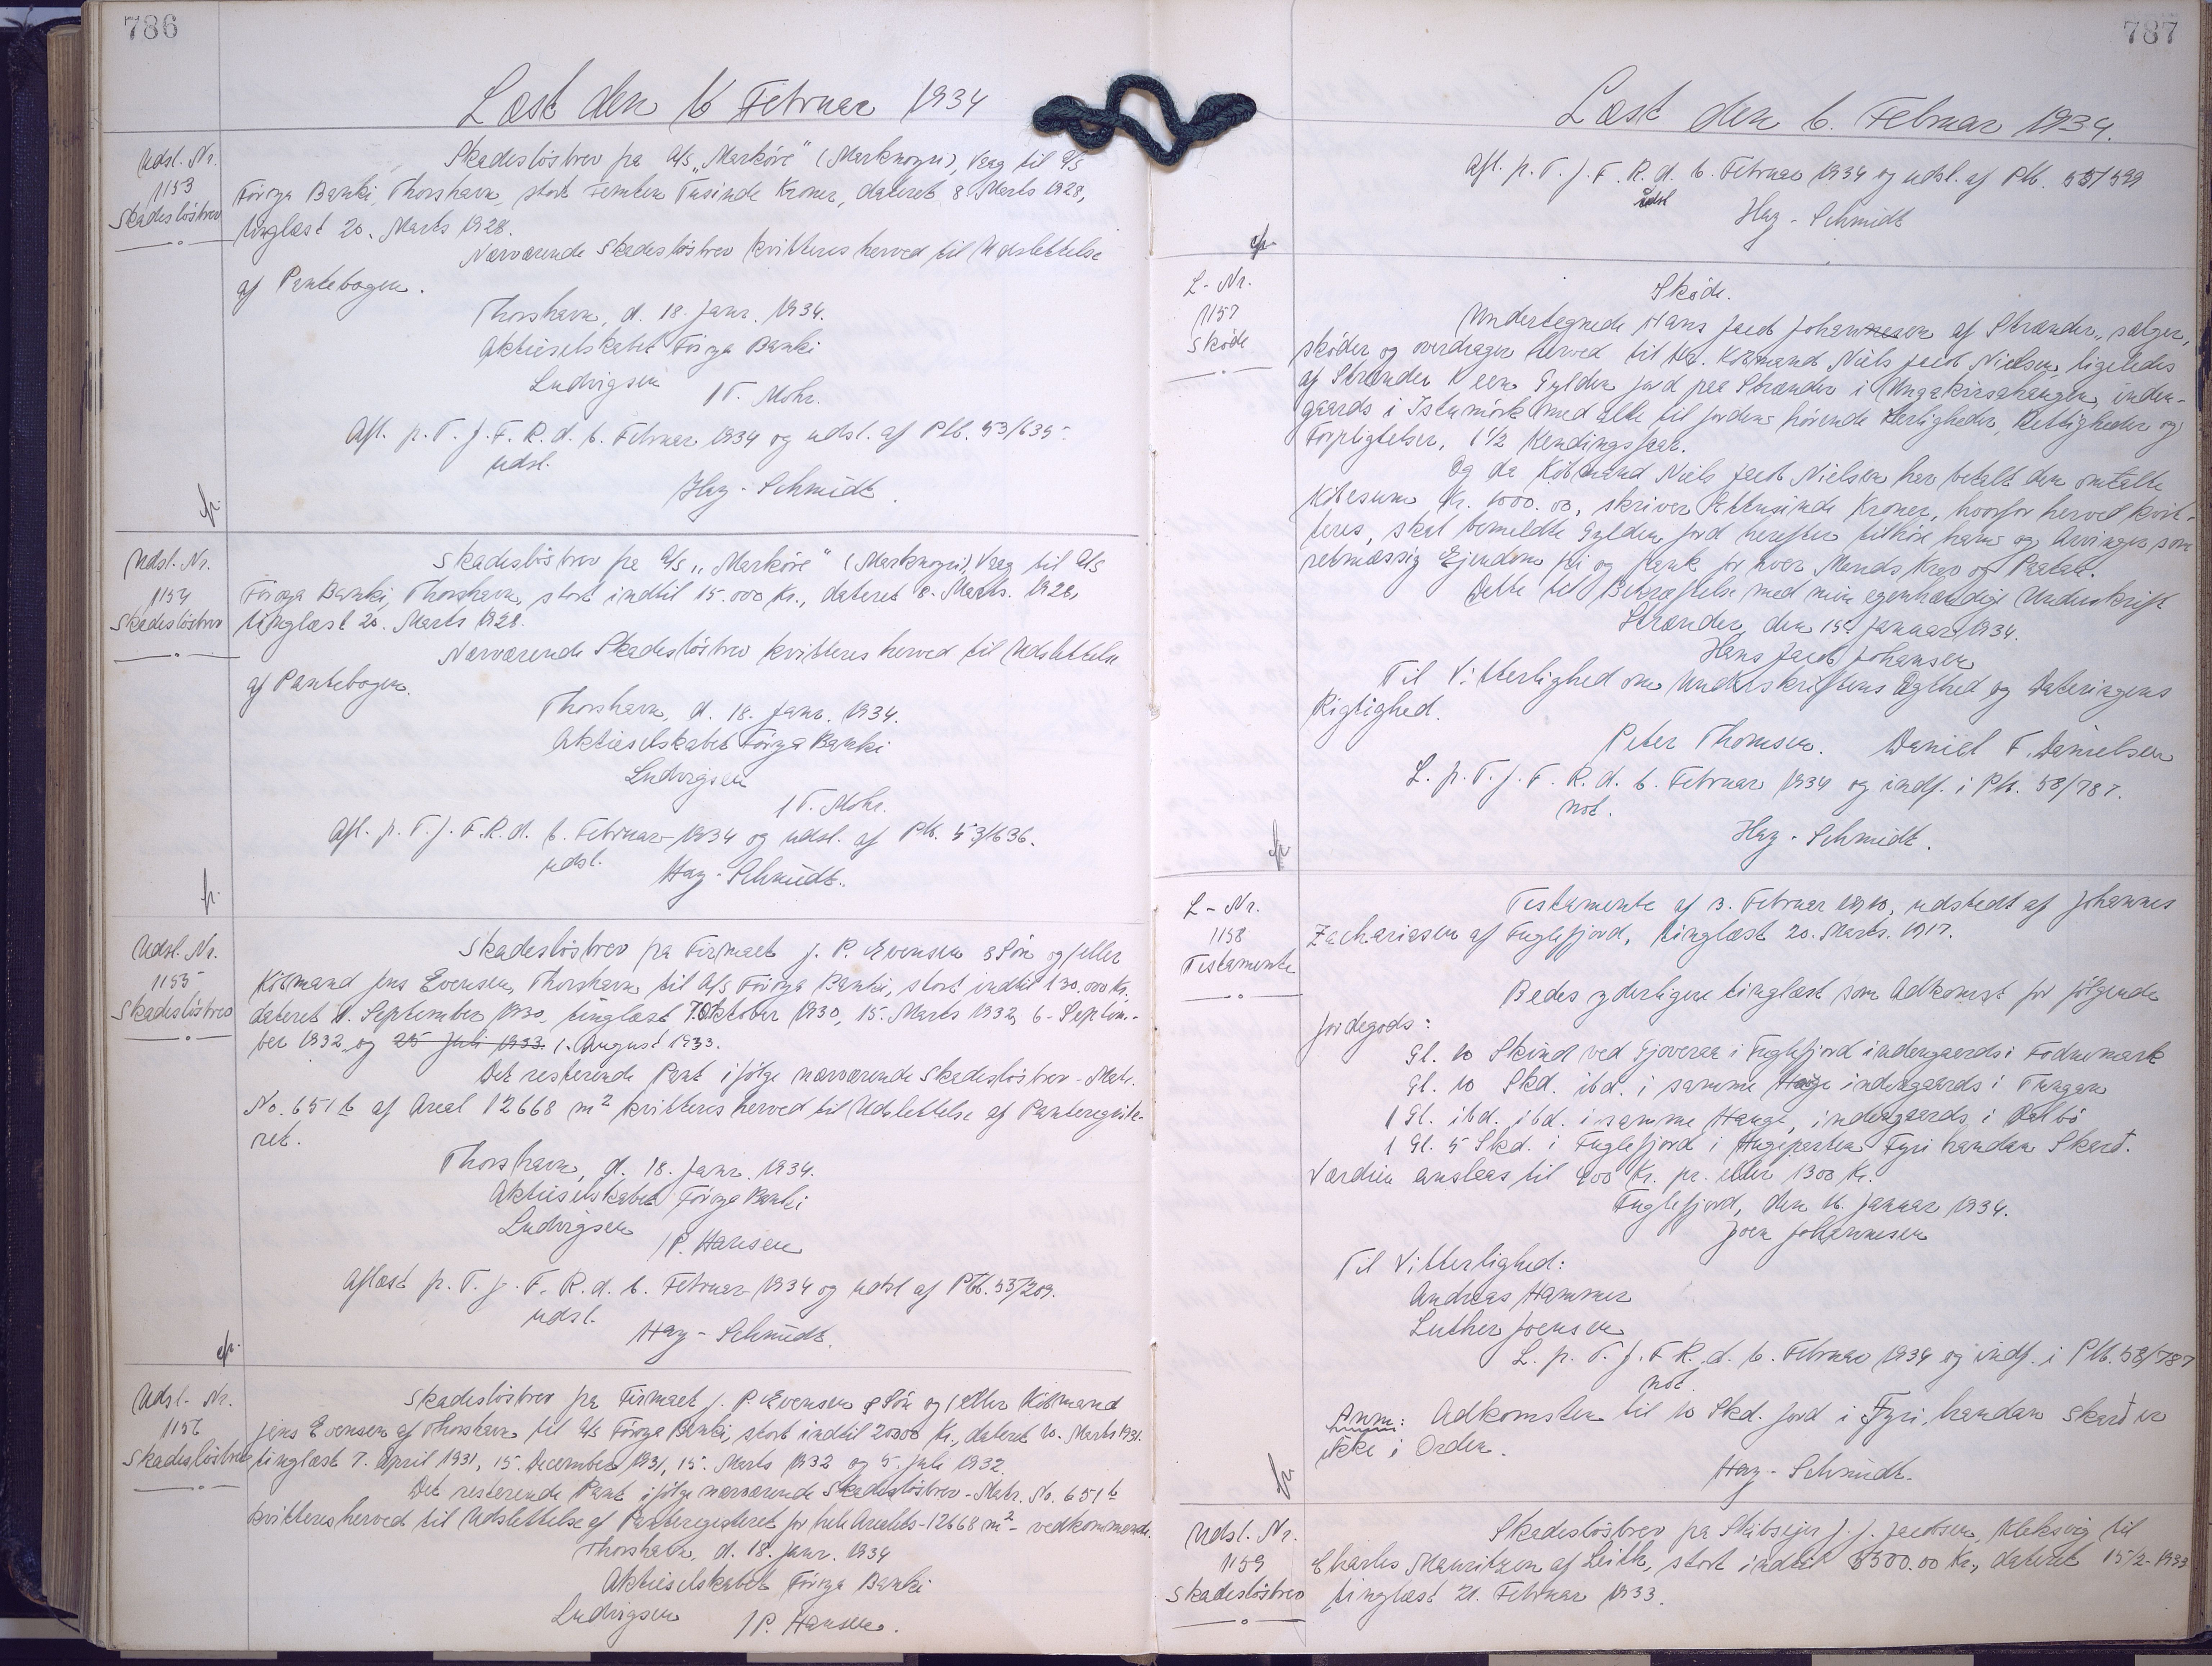 786
Læst den 6 Februar 1934
Udsl. Nr.
1153
Skadesløsbrev
Skadesløsbrev fra A/S "Markøre" (Marknoyri), Vaag til A/S
Föroya Banki, Thorshavn, stort Femten Tusinde Kroner, dateret 8. Marts 1928,
tinglæst 20. Marts 1928.
Nærværende Skadesløsbrev kvitteres herved til Udslettelse
af Pantebogen.
Thorshavn, d. 18. Janr. 1934.
Aktieselskabet Föroya Banki
Ludvigsen
/ T. Mohr.
Afl. p. T. f. F. R. d. 6. Februar 1934 og udsl. af Ptb. 53/635
udsl.
Hoy-Schmidt.
Udsl. Nr.
1154
Skadesløsbrev
Skadesløsbrev fra A/S "Markøre" (Marknoyri), Vaag til A/S
Föroya Banki, Thorshavn, stort indtil 15.000 Kr., dateret 8. Marts. 1928,
tinglæst 20. Marts 1928.
Nærværende Skadesløsbrev kvitteres herved til Udslettelse
af Pantebogen.
Thorshavn, d. 18. Janr. 1934.
Aktieselskabet Föroya Banki
Ludvigsen
/ T. Mohr.
Afl. p. T. f. F. R. d. 6. Februar 1934 og udsl. af Ptb. 53/636.
udsl.
Hoy-Schmidt.
Udsl. Nr.
1155
Skadesløsbrev
Skadesløsbrev fra Firmaet J. P. Evensen & Søn og/eller
Købmand Jens Evensen, Thorshavn til A/S Föroya Banki, stort indtil 130.000 Kr.
dateret 1. September 1930, tinglæst 7. Oktober 1930, 15. Marts 1932, 6. Septem-
ber 1932, og 25 Juli 1933. 1. August 1933.
Det resterende Pant ifølge nærværende Skadesløsbrev - Matr.
No. 651 b af Areal 12668 m² kvitteres herved til Udslettelse af Panteregiste-
ret.
Thorshavn, d. 18. Janr. 1934.
Aktieselskabet Föroya Banki
Ludvigsen
/ P. Hansen
Aflæst p. T. f. F. R. d. 6. Februar 1934 og udsl af Ptb. 55/209.
udsl.
Hoy-Schmidt.
Udsl. Nr.
1156
Skadesløsbrev
Skadesløsbrev fra Firmaet J. P. Evensen & Søn og/eller Købmand
Jens Evensen af Thorshavn til A/S Föroya Banki, stort indtil 20000 Kr., dateret 10. Marts 1931.
tinglæst 7. April 1931, 15. December 1931, 15. Marts 1932 og 5. Juli 1932.
Det resterende Pant ifølge nærværende Skadesløsbrev - Matr. No. 651 b
kvitteres herved til Udslettelse af Panteregisteret for hele Arealets - 12668 m² - vedkommende.
Thorshavn, d. 18. Janr. 1934
Aktieselskabet Föroya Banki
Ludvigsen / P. Hansen.
787
Læst den 6. Februar 1934.
Afl. p. T. f. F. R. d. 6. Februar 1934 og udsl. af Ptb. 55/599
udsl
Hoy-Schmidt
L-Nr.
1157
Skøde
Skøde.
Undertegnede Hans Jacob Johannesen af Strænder, sælger,
skøder og overdrager herved til Hr. Købmand Niels Jacob Nielsen, ligeledes
af Strænder 1 een Gylden Jord paa Strænder i Ungakirsahaugen, inden-
gaards i Istumörk med alle til Jorden hørende Herligheder, Rettigheder og
Forpligtelser, 1 1/2 Kendingsfaar.
Og da Købmand Niels Jacob Nielsen har betalt den omtalte
Købesum Kr. 1000.00, skriver Ettusinde Kroner, hvorfor herved kvit-
teres, skal bemeldte Gylden Jord herefter tilhøre ham og Arvinger som
retmæssig Ejendom fri og frank for hver Mands Krav og Paatale.
Dette til Bekræftelse med min egenhændige Underskrift
Strænder, den 15. Januar 1934.
Hans Jacob Johansen
Til Vitterlighed om Underskriftens Ægthed og Dateringens
Rigtighed.
Peter Thomsen. Daniel F. Danielsen
L. p. T. f. F. R. d. 6. Februar 1934 og indf. i Ptb. 58/787.
not.
Hoy-Schmidt.
L-Nr.
1158
Testamente
Testamente af 3. Februar 1910, udstedt af Johannes
Zachariasen af Fuglefjord, tinglæst 20. Marts. 1917.
Bedes yderligere tinglæst som Adkomst for følgende
Jordegods:
Gl. 10 Skind ved Gjoveraa i Fuglefjord indengaards i Fodnumark
Gl. 10 Skd. ibd. i samme Hauge indengaards i Tragan
1 Gl. ibd. ibd. i samme Hauge, indengaards i Dalbö
1 Gl. 5 Skd. i Fuglefjord i Augiparten Fyri handan Skarð.
Værdien anslaas til 400 Kr. pr. eller 1300 Kr.
Fuglefjord, den 16. Januar 1934.
Joen Johannesen
Til Vitterlighed:
Andreas Hammer
Luther Joensen
L. p. T. f. F. R. d. 6. Februar 1934 og indf. i Ptb. 58/787
not.
Anm: Adkomsten til 10 Skd. Jord i Fyri handan Skarð er
ikke i Orden.
Hoy-Schmidt.
Udsl. Nr.
1159
Skadesløsbrev
Skadesløsbrev fra Skibsejer J. J. Jacobsen, Klaksvig til
Charles Mauritzen af Leith, stort indtil 3500.00 Kr., dateret 15/2-1933
tinglæst 21. Februar 1933.